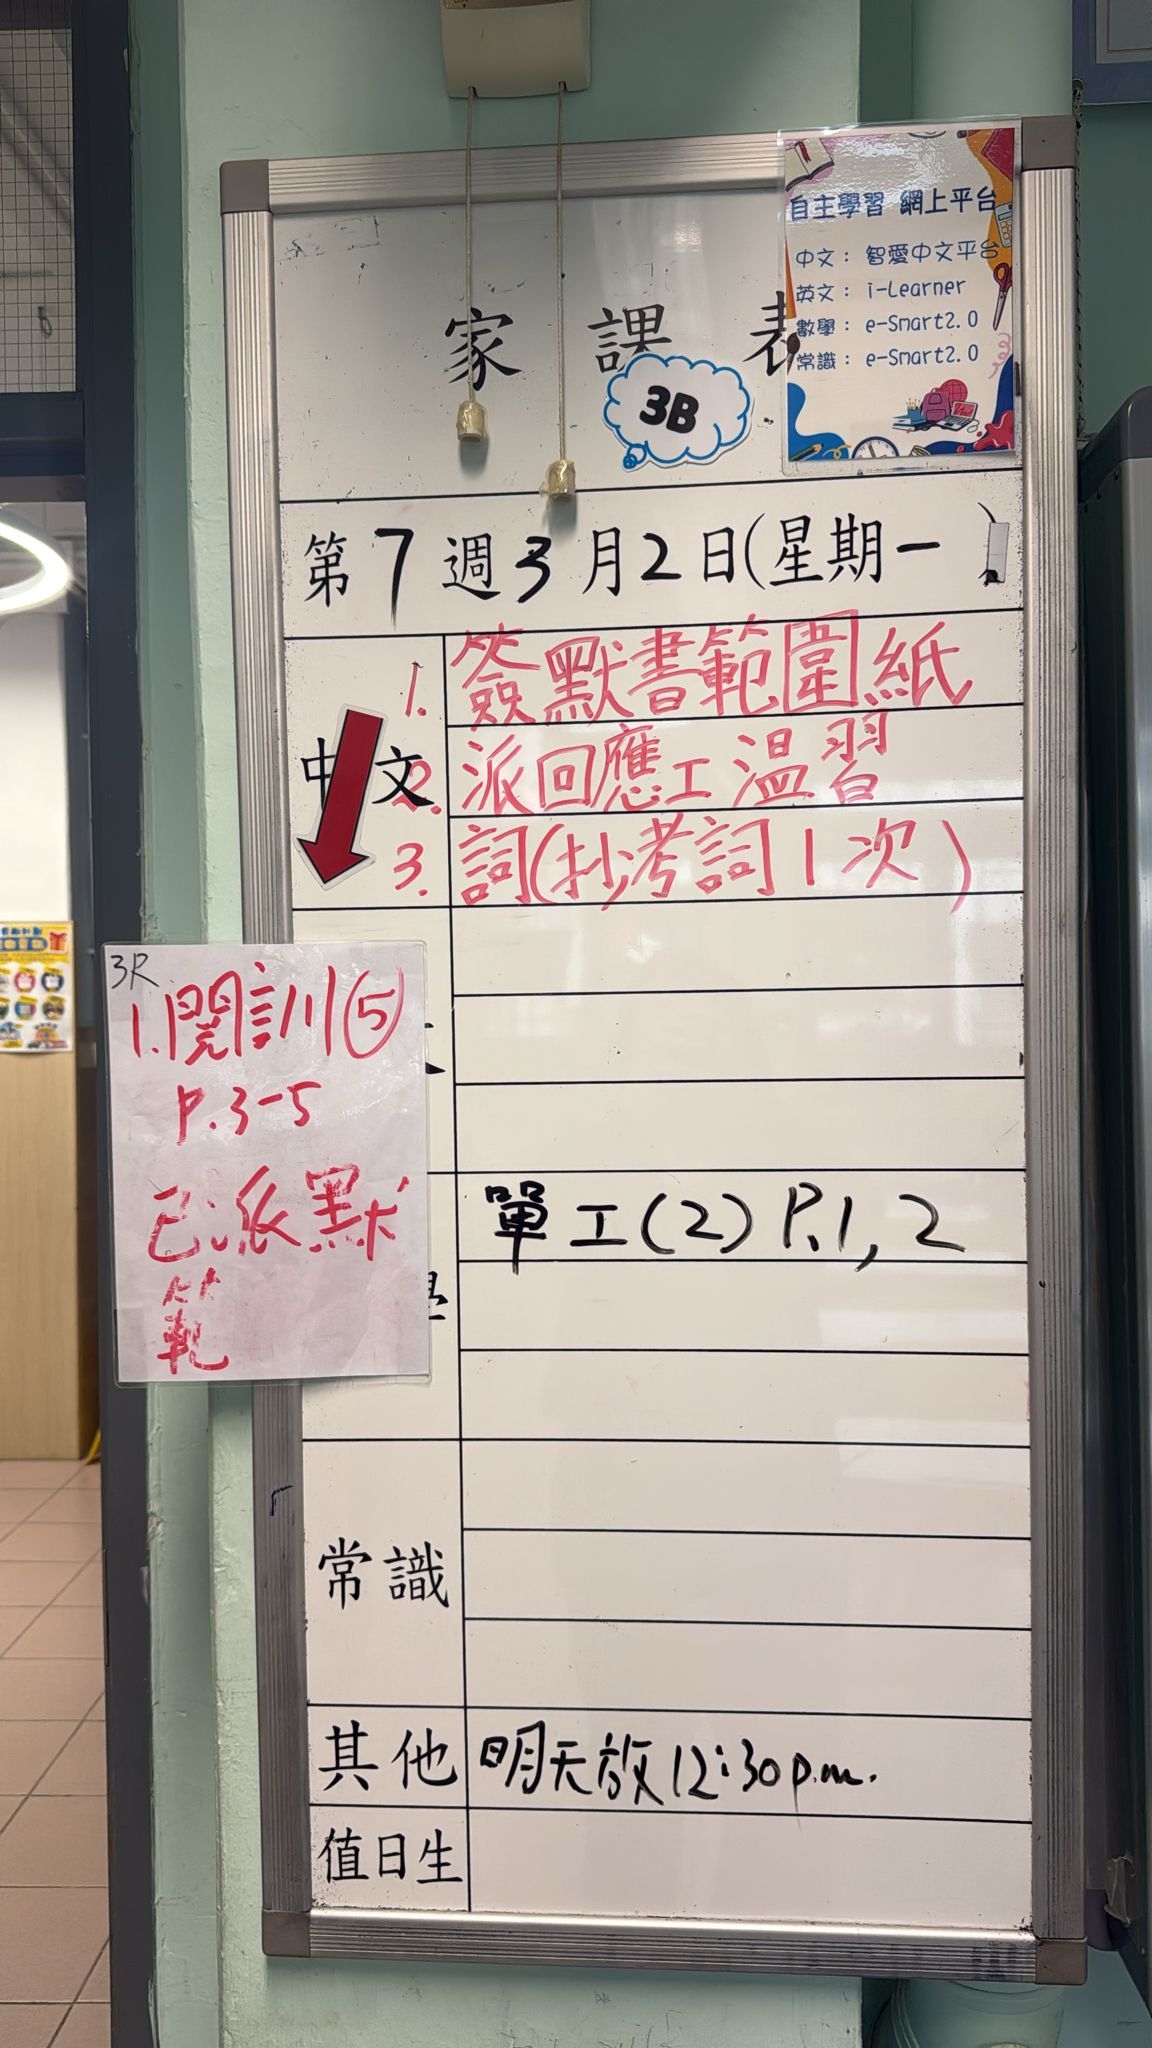 自主學習 網上平台
中文： 智愛中文平台
英文： i-Learner
數學： e-Smart2.0
常識： e-Smart2.0
家 課 表
3B
第7週3月2日(星期一
中文
1. 簽默書範圍紙
2. 派回應工溫習
3. 詞(抄考詞1次)
3R
1.閱訓⑤
P.3-5
已派默
範
單工(2) P.1, 2
常識
其他
明天放12:30p.m.
值日生